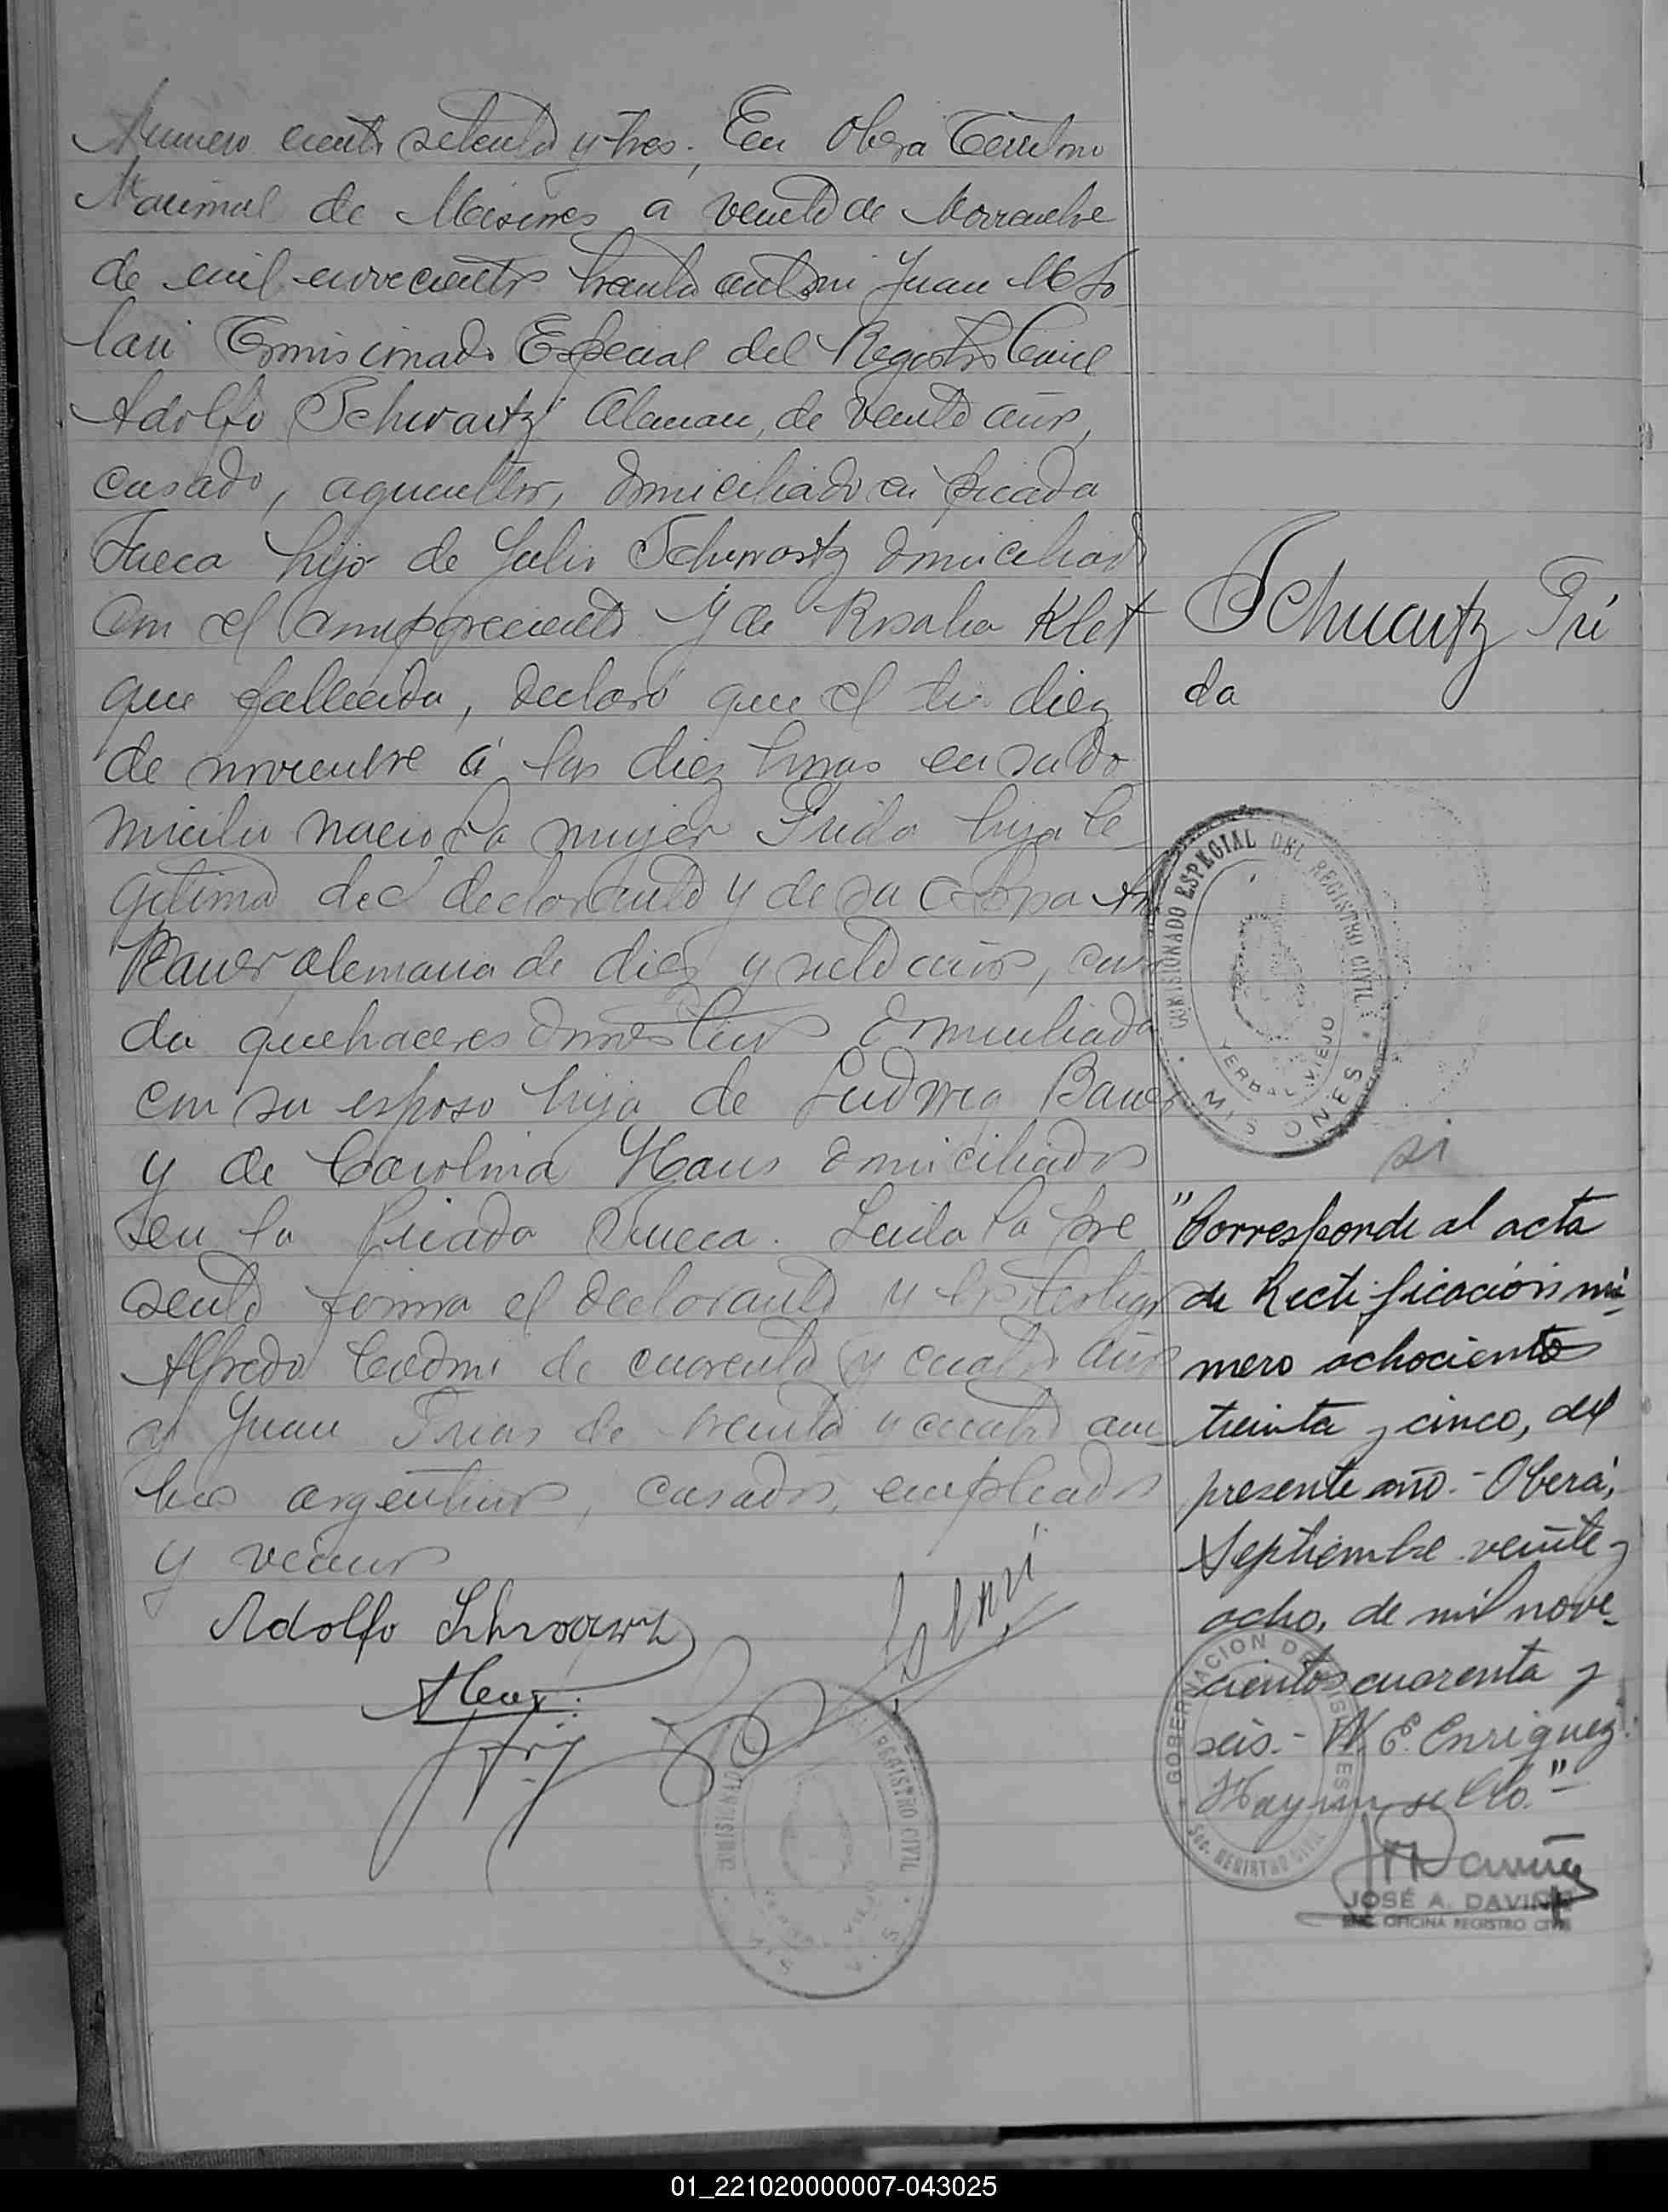 Numero ciento setenta y tres. En Obera Territorio
Nacional de Misiones a veinte de Noviembre
de mil novecientos treinta ante mi Juan M So
lari Comisionado Especial del Registro Civil
Adolfo Schwartz Aleman, de veinte años,
casado, agricultor, domiciliado en picada
Sueca hijo de Julio Schwartz domiciliado
con el compareciente y de Rosalia Klet
que fallecida, declaró que el dia diez
de noviembre á las diez horas en su do
micilio nacio la mujer Frida hija le
gitima del declarante y de su esposa
Bauer alemana de diez y siete años, casa
da quehaceres domesticos domiciliada
con su esposo hija de Ludwig Bauer
y de Carolina Haus domiciliados
en la Picada Sueca. Leida la pre
sente firma el declarante y los testigos
Alfredo de cuarenta y cuatro años
y Juan Frias de treinta y cuatro am
bos argentinos, casados, empleados
y vecinos
Adolfo Schwartz
Solari
Schwartz Fri
da
COMISIONADO ESPECIAL DEL REGISTRO CIVIL
YERBAL VIEJO
MISIONES
si
"Corresponde al acta
de Rectificación nú-
mero ochocientos
treinta y cinco, del
presente año.- Oberá,
Septiembre veinte y
ocho, de mil nove-
cientos cuarenta y
seis.- N. E. Enriquez.
Hay un sello."-
GOBERNACION DE MISIONES
SEC. REGISTRO CIVIL
JOSÉ A. DAVIÑA
ENC. OFICINA REGISTRO CIVIL
COMISIONADO REGISTRO CIVIL
01_221020000007-043025